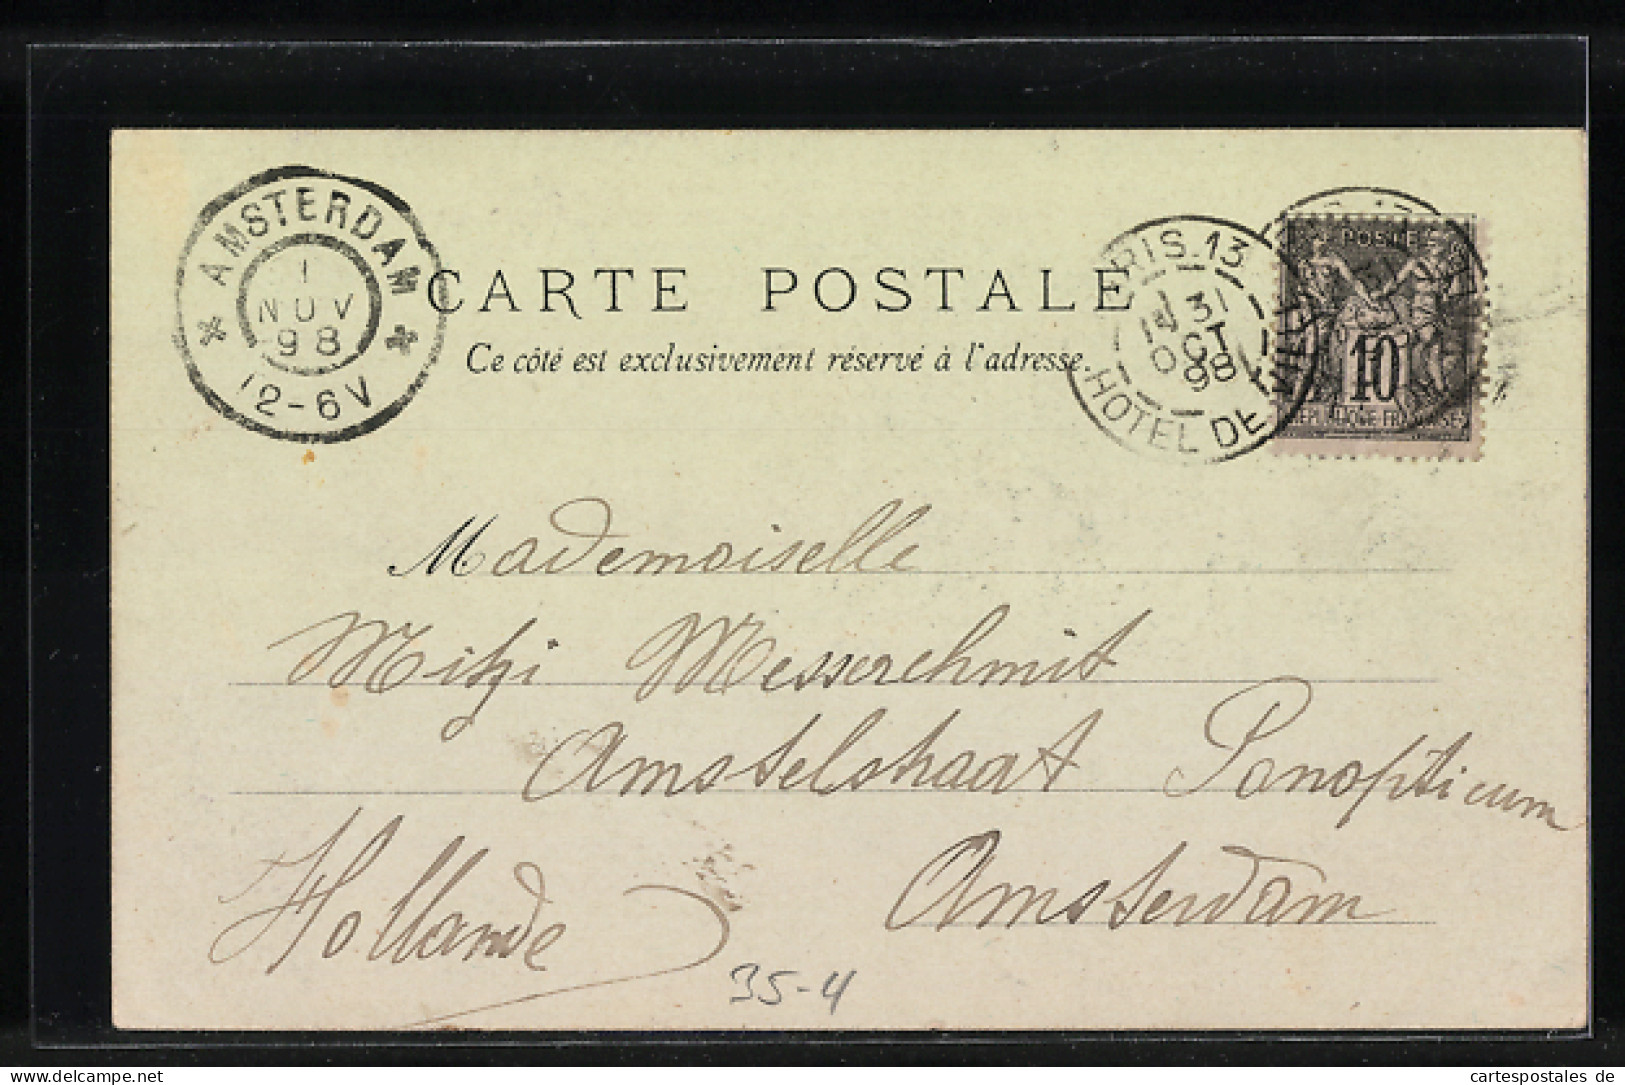 AMSTERDAM
1
NOV
98
12-6V
CARTE POSTALE
Ce côté est exclusivement réservé à l'adresse.
PARIS.13
31
OCT
98
HOTEL DE VILLE
POSTE
10
REPUBLIQUE FRANCAISE
Mademoiselle
Mitzi Messerchmit
Amstelstraat Panopticum
Amsterdam
Hollande
35-4
delcampe.net
cartespostales de